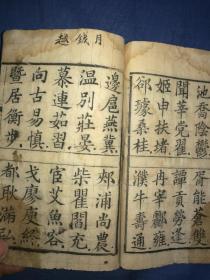 月錢越
池喬陰鬱胥能蒼雙
聞莘黨翟譚貢勞逄
姬申扶堵冉宰酈雍
郤璩桑桂濮牛壽通
邊扈燕冀郟浦尚農
溫別莊晏柴瞿閻充
慕連茹習宦艾魚容
向古易慎戈廖庾終
暨居衡步都耿滿弘